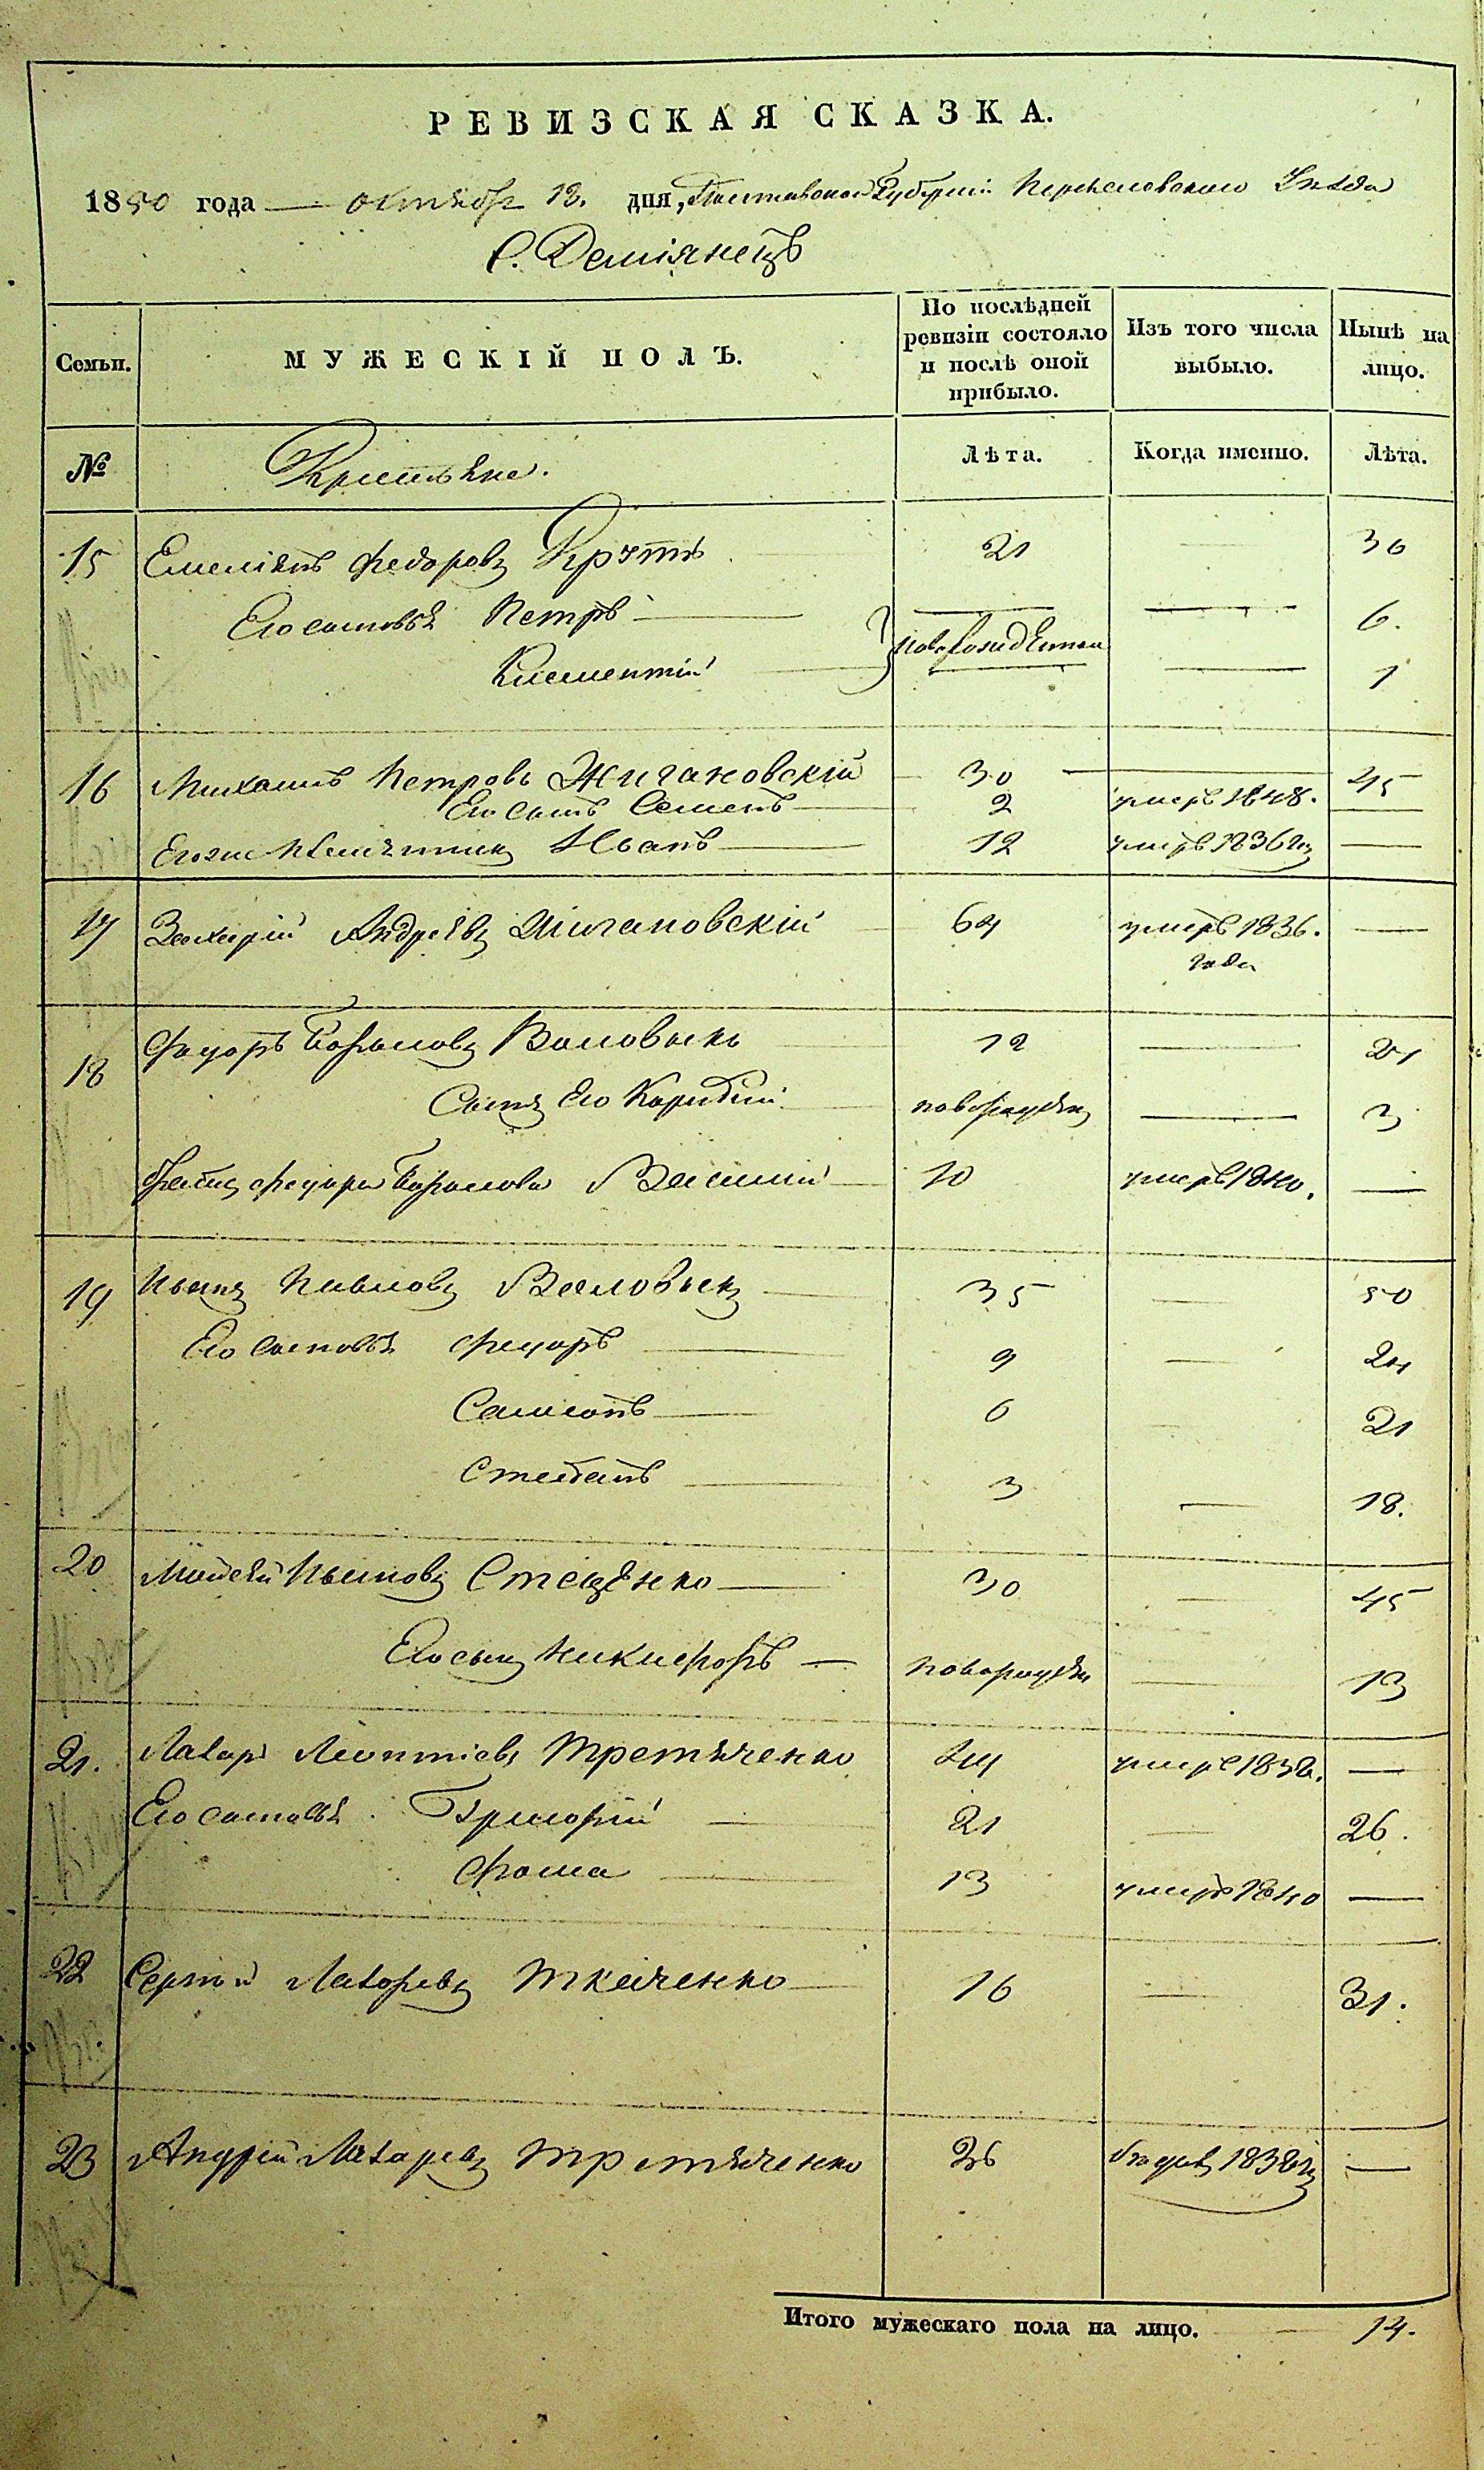 РЕВИЗСКАЯ СКАЗКА.
1850 года — октября 13. дня, Полтавской Губерніи Переяславского Уезда
С. Демянецъ
Семьи.
МУЖЕСКІЙ ПОЛЪ.
По послѣдней ревизіи состояло и послѣ оной прибыло.
Изъ того числа выбыло.
Нынѣ на лицо.
№ Крестьяне. Лѣта. Когда именно. Лѣта.
15 Емелiянъ Федоровъ 21 — 36
Его сыновья Петръ — — 6.
Климентій — новорожденные — 1
16 Михаилъ Петровъ Жигановскій — 30 — 45
Его сынъ Семенъ — 2 умеръ 1848. —
Его же племянникъ Иванъ — 12 умеръ 1836 го —
17 Захарій Андреевъ Жигановскій 64 умеръ 1836. года —
18 Федоръ Воловыкъ 12 — 27
Сынъ Его новорожден — 3
Братъ Федора Василий — 10 умеръ 1840. —
19 Иванъ Павловъ Воловыкъ — 35 — 50
Его сыновья Федоръ — 9 — 24
Самсонъ — 6 21
Степанъ — 3 — 18.
20 Мойсей Ивановъ Стеценко — 30 — 45
Его сынъ Никифоръ — новорожден — 13
21. Лазарь Леонтіевъ Третяченко умеръ —
Его сыновья Григорій — 21 — 26.
Фома — 13 умеръ 1840 —
22 Сергій Лазаревъ Ткаченко — 16 — 31.
23 Андрей Лазаревъ Третяченко 26 —
Итого мужескаго пола на лицо. — 14.